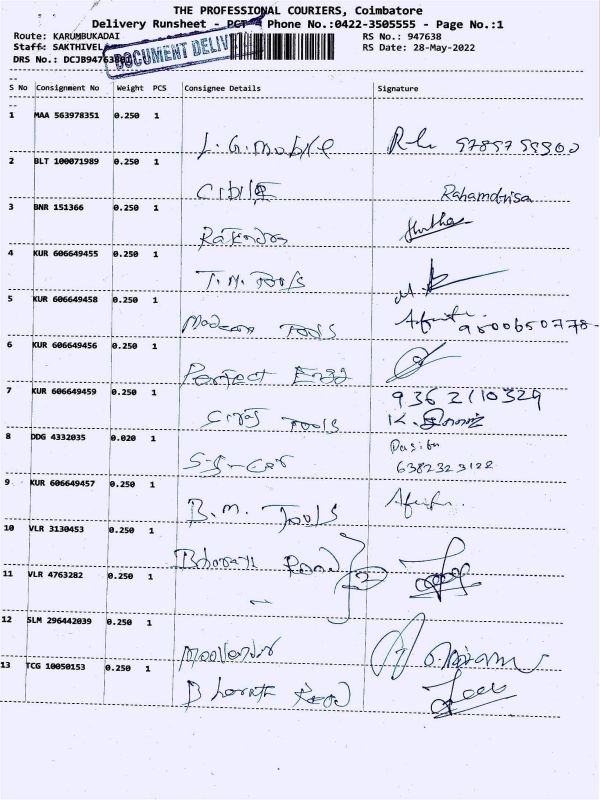 THE PROFESSIONAL COURIERS, Coimbatore
Delivery Runsheet - PCT - Phone No.:0422-3505555 - Page No.:1
Route: KARUMBUKADAI RS No.: 947638
Staff: SAKTHIVEL RS Date: 28-May-2022
DRS No.: DCJB947638
DOCUMENT DELIV
S No Consignment No Weight PCS Consignee Details Signature
1 MAA 563978351 0.250 1
L.G. Mobile
2 BLT 100071989 0.250 1
3 BNR 151366 0.250 1
4 KUR 606649455 0.250 1
T.M. Tools
5 KUR 606649458 0.250 1
Modern Tools 9500650778
6 KUR 606649456 0.250 1
Perfect Engg
7 KUR 606649459 0.250 1 9362110329
Tools
8 DDG 4332035 0.020 1
6382323122
9 KUR 606649457 0.250 1
B.M. Tools
10 VLR 3130453 0.250 1
Bharath
11 VLR 4763282 0.250 1
2
12 SLM 296442039 0.250 1
13 TCG 10050153 0.250 1
Bharath